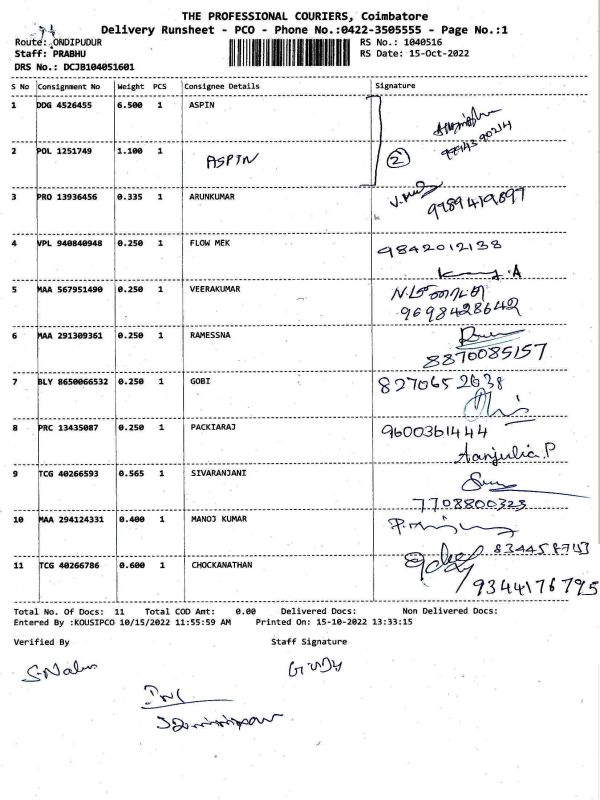 THE PROFESSIONAL COURIERS, Coimbatore
Delivery Runsheet - PCO - Phone No.:0422-3505555 - Page No.:1
Route: ONDIPUDUR
RS No.: 1040516
Staff: PRABHU
RS Date: 15-Oct-2022
DRS No.: DCJB104051601
S No Consignment No Weight PCS Consignee Details Signature
1 DDG 4526455 6.500 1 ASPIN
2 POL 1251749 1.100 1 ASPIN 2
3 PRO 13936456 0.335 1 ARUNKUMAR 9789419697
4 VPL 940840948 0.250 1 FLOW MEK 9842012138
5 MAA 567951490 0.250 1 VEERAKUMAR
9698428642
6 MAA 291309361 0.250 1 RAMESSNA
8870085157
7 BLY 8650066532 0.250 1 GOBI 8270652638
8 PRC 13435087 0.250 1 PACKIARAJ 9600361444
Aanjulia.P
9 TCG 40266593 0.565 1 SIVARANJANI
7708800323
10 MAA 294124331 0.400 1 MANOJ KUMAR
11 TCG 40266786 0.600 1 CHOCKANATHAN
9344176795
Total No. Of Docs: 11 Total COD Amt: 0.00 Delivered Docs: Non Delivered Docs:
Entered By :KOUSIPCO 10/15/2022 11:55:59 AM Printed On: 15-10-2022 13:33:15
Verified By Staff Signature